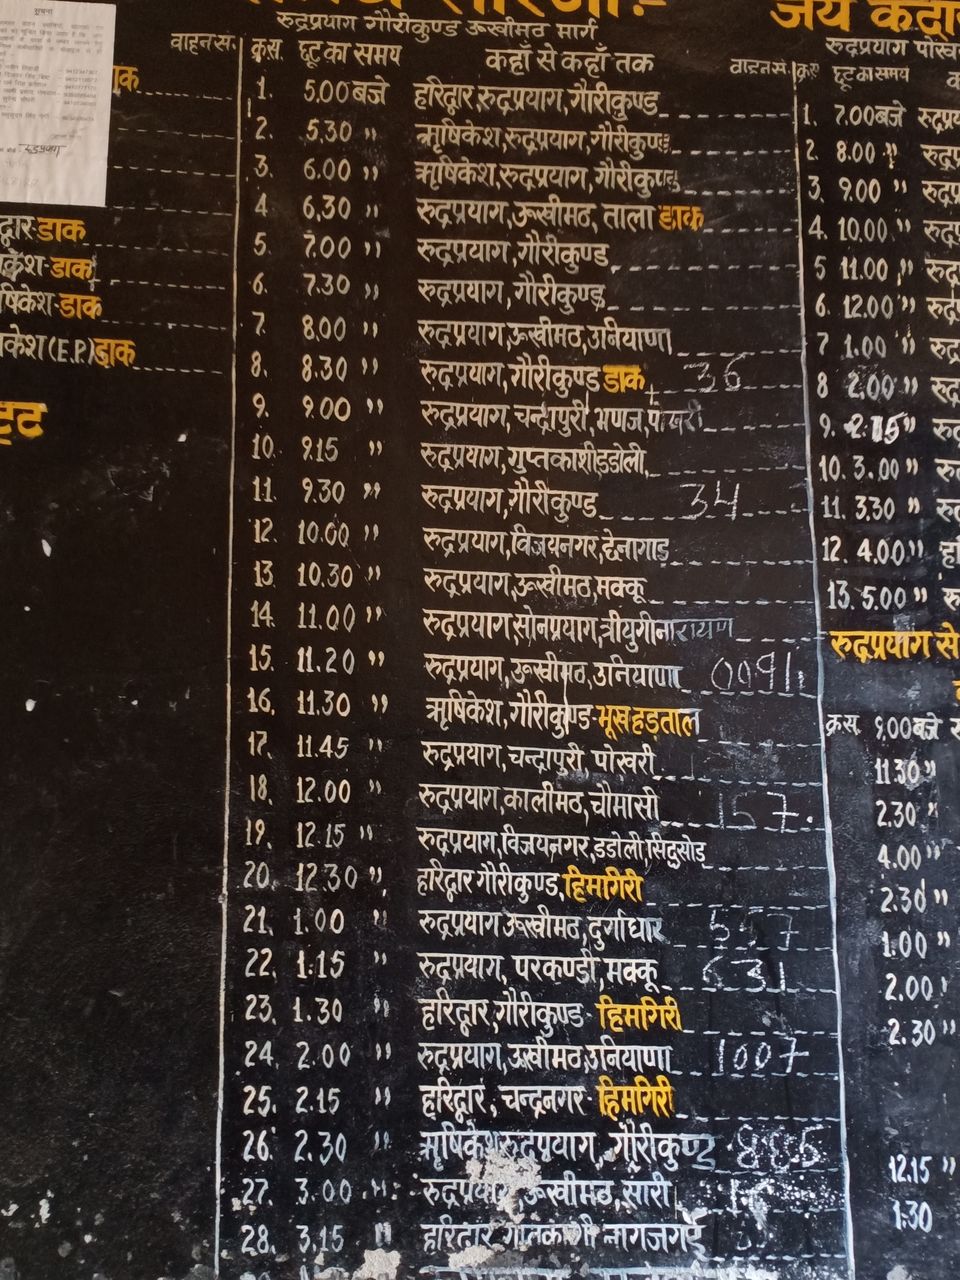 जय केदार
रुद्रप्रयाग गौरीकुण्ड ऊखीमठ मार्ग
वाहन सं. क्र.स. छूट का समय कहाँ से कहाँ तक वाहन सं.
1. 5.00 बजे हरिद्वार, रुद्रप्रयाग, गौरीकुण्ड
2. 5.30 " ऋषिकेश, रुद्रप्रयाग, गौरीकुण्ड
3. 6.00 " ऋषिकेश, रुद्रप्रयाग, गौरीकुण्ड
4 6.30 " रुद्रप्रयाग, ऊखीमठ, ताला डाक
5. 7.00 " रुद्रप्रयाग, गौरीकुण्ड
6. 7.30 " रुद्रप्रयाग, गौरीकुण्ड
7. 8.00 " रुद्रप्रयाग, ऊखीमठ, उनियाणा
8. 8.30 " रुद्रप्रयाग, गौरीकुण्ड डाक 36
9. 9.00 " रुद्रप्रयाग, चन्द्रापुरी, भणज, पोखरी
10. 9.15 " रुद्रप्रयाग, गुप्तकाशी, डडोली,
11. 9.30 " रुद्रप्रयाग, गौरीकुण्ड 34
12. 10.00 " रुद्रप्रयाग, विजयनगर, छेनागाड़
13. 10.30 " रुद्रप्रयाग, ऊखीमठ, मक्कू
14. 11.00 " रुद्रप्रयाग, सोनप्रयाग, त्रीयुगीनारायण
15. 11.20 " रुद्रप्रयाग, ऊखीमठ, उनियाणा
16. 11.30 " ऋषिकेश, गौरीकुण्ड-भूख हड़ताल
17. 11.45 " रुद्रप्रयाग, चन्द्रापुरी, पोखरी
18. 12.00 " रुद्रप्रयाग, कालीमठ, चौमासी 157.
19. 12.15 " रुद्रप्रयाग, विजयनगर, डडोली, सिद्धसोड़
20. 12.30 " हरिद्वार गौरीकुण्ड, हिमगिरी
21. 1.00 " रुद्रप्रयाग ऊखीमठ, दुर्गाधार 557
22. 1.15 " रुद्रप्रयाग, परकण्डी, मक्कू 631
23. 1.30 " हरिद्वार, गौरीकुण्ड - हिमगिरी
24. 2.00 " रुद्रप्रयाग, ऊखीमठ, उनियाणा 1007
25. 2.15 " हरिद्वार, चन्द्रनगर - हिमगिरी
26. 2.30 " ऋषिकेश, रुद्रप्रयाग, गौरीकुण्ड
27. 3.00 " रुद्रप्रयाग, ऊखीमठ, सारी
28. 3.15 " हरिद्वार
डाक
डाक
डाक
डाक
(E.P.) डाक
क्र.स. छूट का समय
1. 7.00 बजे
2. 8.00 "
3. 9.00 "
4. 10.00 "
5 11.00 "
6. 12.00 "
7 1.00 "
8 2.00 "
9. 2.15 "
10. 3.00 "
11. 3.30 "
12. 4.00 "
13. 5.00 "
रुद्रप्रयाग से
क्र.स. 9.00 बजे
11.30 "
2.30 "
4.00 "
2.30 "
1.00 "
2.00
2.30 "
12.15 "
1.30